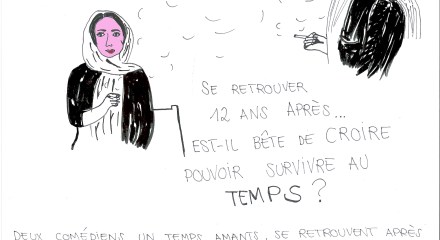 SE RETROUVER
12 ANS APRÈS...
EST-IL BÊTE DE CROIRE
POUVOIR SURVIVRE AU
TEMPS ?
DEUX COMÉDIENS, UN TEMPS AMANTS, SE RETROUVENT APRÈS